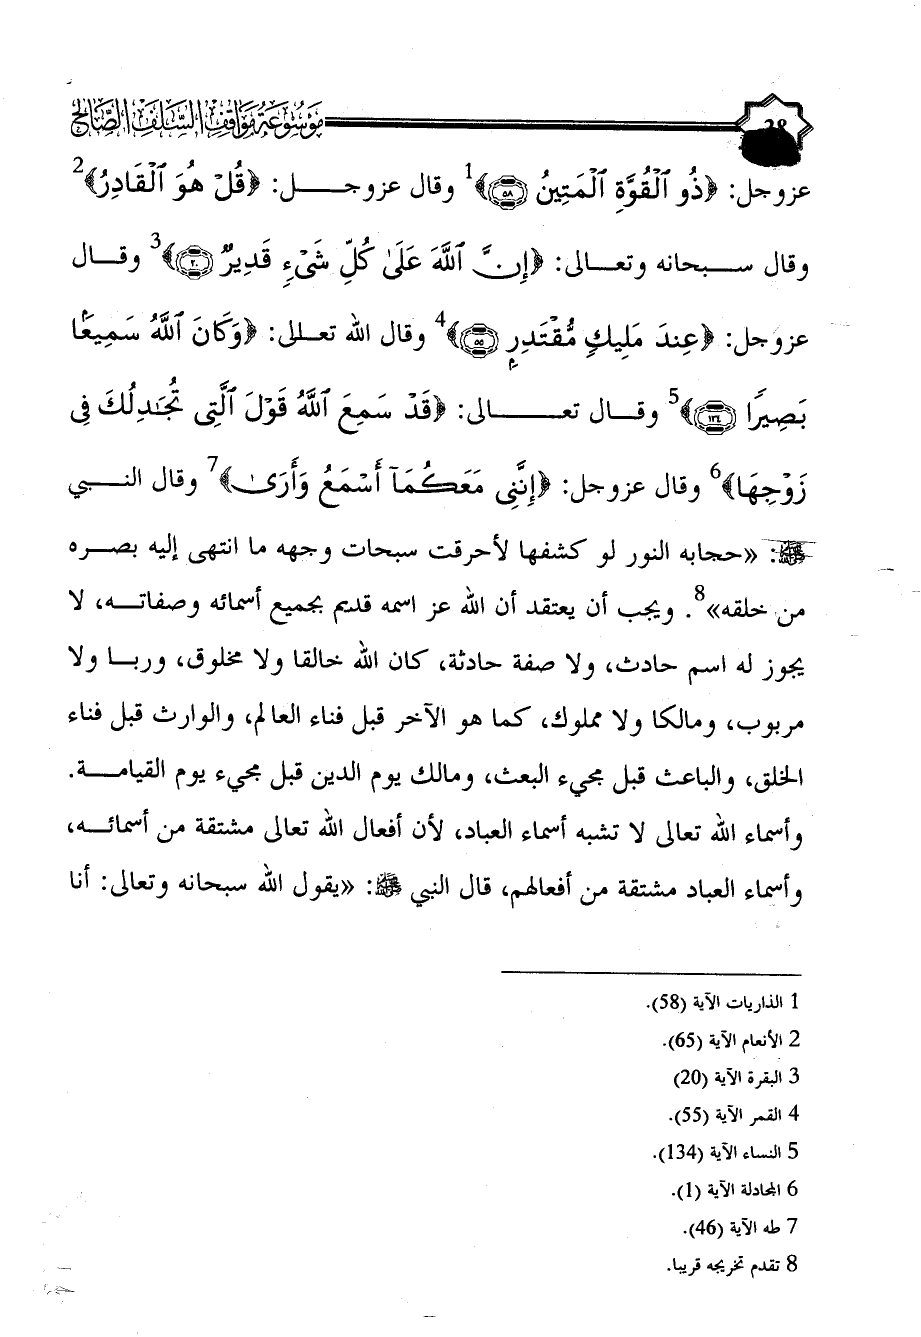 موسوعة مواقف السلف الصالح
عزوجل: ﴿ذُو ٱلْقُوَّةِ ٱلْمَتِينُ ۝٥٨﴾1 وقال عزوجل: ﴿قُلْ هُوَ ٱلْقَادِرُ﴾2
وقال سبحانه وتعالى: ﴿إِنَّ ٱللَّهَ عَلَىٰ كُلِّ شَىْءٍ قَدِيرٌ ۝٢٠﴾3 وقال
عزوجل: ﴿عِندَ مَلِيكٍ مُّقْتَدِرٍ ۝٥٥﴾4 وقال الله تعالى: ﴿وَكَانَ ٱللَّهُ سَمِيعًا
بَصِيرًا ۝١٣٤﴾5 وقال تعالى: ﴿قَدْ سَمِعَ ٱللَّهُ قَوْلَ ٱلَّتِى تُجَـٰدِلُكَ فِى
زَوْجِهَا﴾6 وقال عزوجل: ﴿إِنَّنِى مَعَكُمَآ أَسْمَعُ وَأَرَىٰ﴾7 وقال النبي
ﷺ: «حجابه النور لو كشفها لأحرقت سبحات وجهه ما انتهى إليه بصره
من خلقه»8. ويجب أن يعتقد أن الله عز اسمه قديم بجميع أسمائه وصفاته، لا
يجوز له اسم حادث، ولا صفة حادثة، كان الله خالقا ولا مخلوق، وربا ولا
مربوب، ومالكا ولا مملوك، كما هو الآخر قبل فناء العالم، والوارث قبل فناء
الخلق، والباعث قبل مجيء البعث، ومالك يوم الدين قبل مجيء يوم القيامة.
وأسماء الله تعالى لا تشبه أسماء العباد، لأن أفعال الله تعالى مشتقة من أسمائه،
وأسماء العباد مشتقة من أفعالهم، قال النبي ﷺ: «يقول الله سبحانه وتعالى: أنا
1 الذاريات الآية (58).
2 الأنعام الآية (65).
3 البقرة الآية (20)
4 القمر الآية (55).
5 النساء الآية (134).
6 المجادلة الآية (1).
7 طه الآية (46).
8 تقدم تخريجه قريبا.